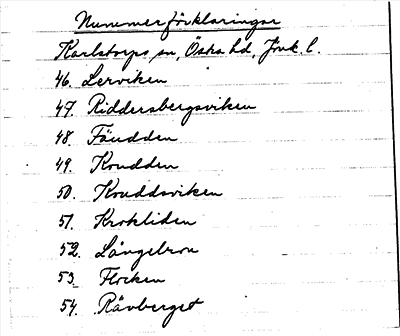 Nummerförklaringar
Karlstorps sn, Östra hd, Jönk. l.
46. Lerviken
47. Riddersbergsviken
48. Fäudden
49. Knudden
50. Knuddsviken
51. Krokliden
52. Långebron
53. Flocken
54. Rävberget